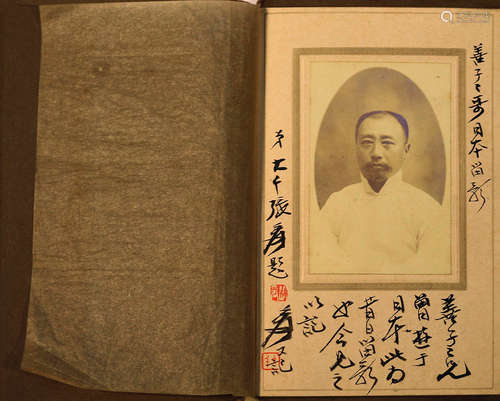 善子二哥日本留影
弟大千張爰題
善子二兄
曾遊于
日本此為
昔日留影
也今見之
以記
爰又記